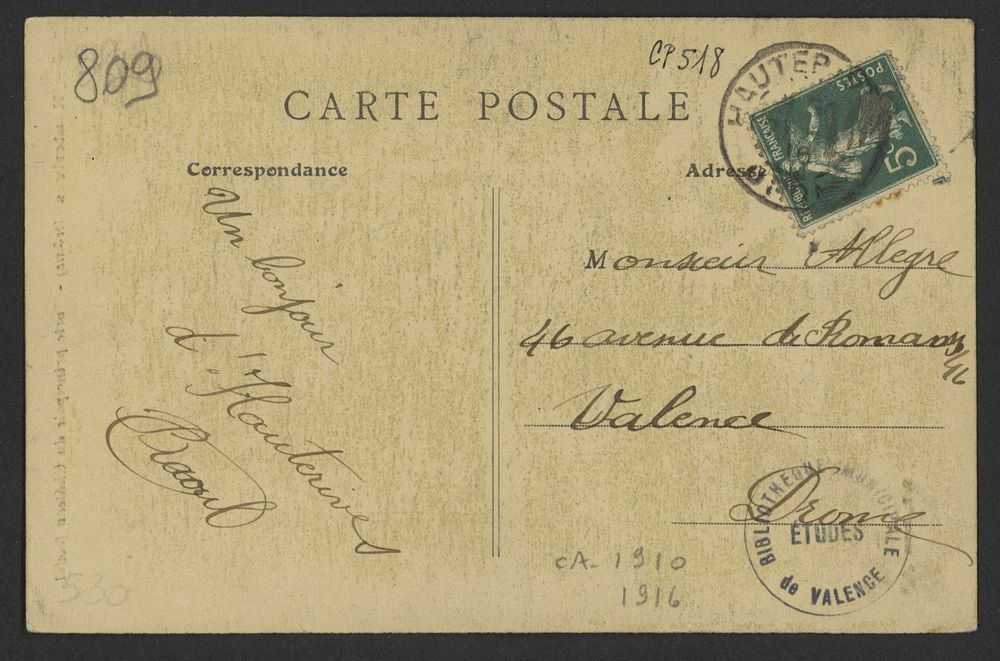 809
CP518
HAUTER
CARTE POSTALE
POSTES
5c
REPUBLIQUE FRANÇAISE
Correspondance
Adresse
Un bonjour
d'Hauterives
Raoul
Monsieur Allegre
46 avenue de Romans
46
Valence
Drome
BIBLIOTHEQUE MUNICIPALE
ETUDES
de VALENCE
CA- 1910
1916
530